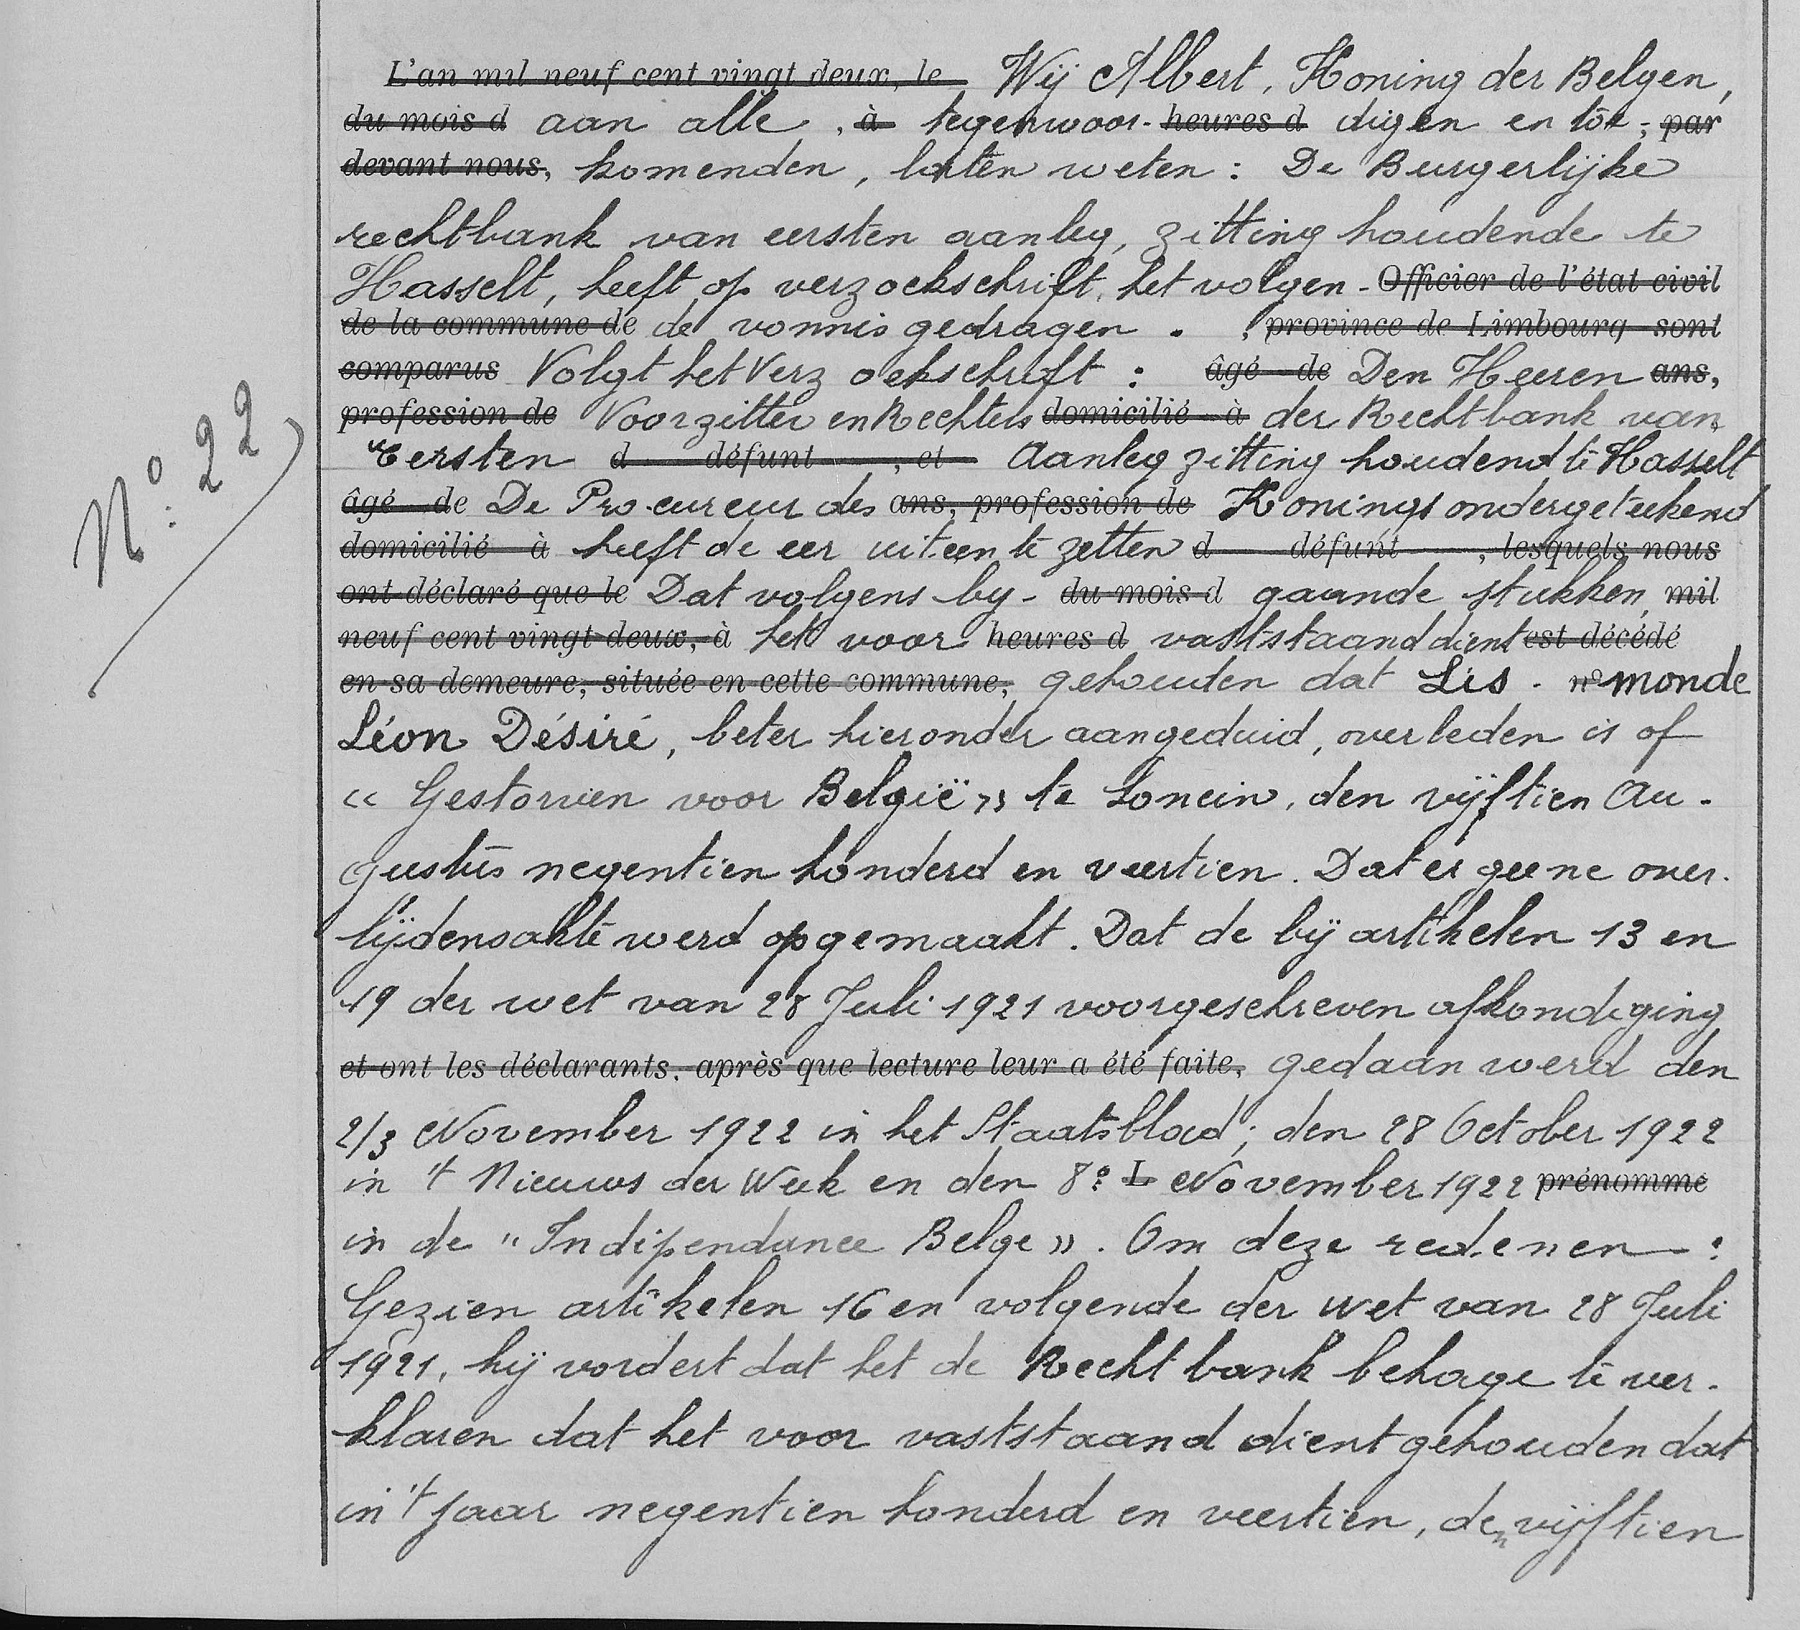 N° 22
L'an mil neuf cent vingt deux, le Wij Albert, Koning der Belgen,
du mois d aan alle, à tegenwoor- heures d digen en toe-, par
devant nous, komenden, laten weten : De Burgerlijke
rechtbank van eersten aanleg, zitting houdende te
Hasselt, heeft op verzoekschrift, het volgen- Officier de l'état civil
de la commune de de vonnis gedragen . , province de Limbourg sont
comparus Volgt het Verzoekschrift : âgé de Den Heeren ans,
profession de Voorzitter en Rechters domicilié à der Rechtbank van
Eersten d défunt , et Aanleg zitting houdend te Hasselt
âgé de De Procureur des ans, profession de Konings ondergeteekend
domicilié à heeft de eer uiteen te zetten d défunt , lesquels nous
ont déclaré que le Dat volgens by- du mois d gaande stukken, mil
neuf cent vingt deux, à het voor heures d vaststaand dient est décédé
en sa demeure, située en cette commune, gehouden dat Lis- n° monde
Léon Désiré, beter hieronder aangeduid, overleden is of
« Gestorven voor België » te Loncin, den vijftien Au-
gustus negentien honderd en veertien. Dat er geene over-
lijdensakte werd opgemaakt. Dat de bij artikelen 13 en
19 der wet van 28 Juli 1921 voorgeschreven afkondiging
et ont les déclarants, après que lecture leur a été faite, gedaan werd den
2/3 November 1922 in het Staatsblad; den 28 October 1922
in 't Nieuws der Week en den 8° L November 1922 prénommé
in de "Indipendance Belge ». Om deze redenen :
Gezien artikelen 16 en volgende der wet van 28 Juli
1921, hij vordert dat het de Rechtbank behage te ver-
klaren dat het voor vaststaand dient gehouden dat
in 't jaar negentien honderd en veertien, den vijftien